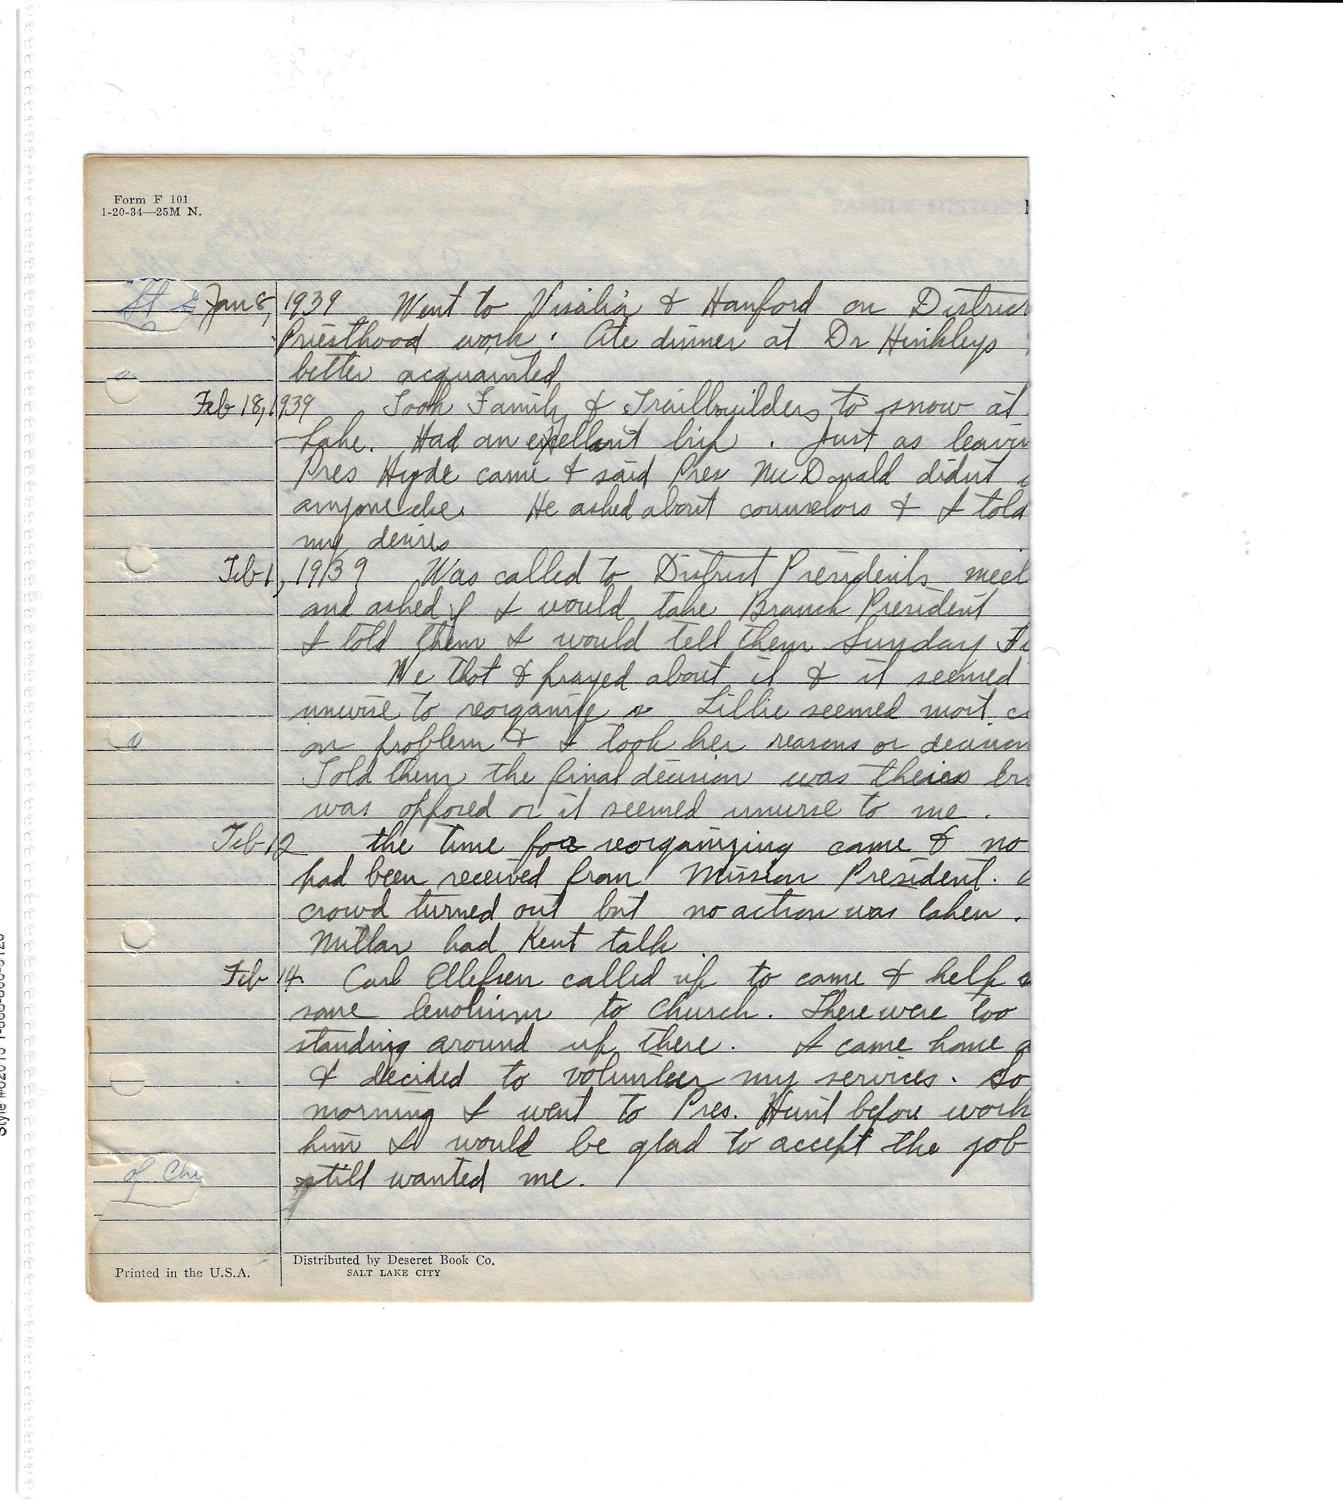 Form F 101
1-20-34—25M N.
Jan 8, 1939 Went to Visalia & Hanford on District
Priesthood work. Ate dinner at Dr Hinkleys
better acquainted
Feb 18, 1939 Took Family & Trailbuilders to snow at
Lake. Had an exellent trip. Just as leavin
Pres Hyde came & said Pres McDonald didnt
anyone else. He asked about counselors & I told
my desires
Feb 1, 1939 Was called to District Presidents meet
and asked if I would take Branch President
I told them I would tell them Sunday
We that & prayed about it & it seemed
unwise to reorganize Lillie seemed most
on problem & I took her reasons or decision
Told them the final decision was theirs
was opposed or it seemed unwise to me.
Feb 12 the time for reorganizing came & no
had been received from Mission President.
crowd turned out but no action was taken.
Millar had Kent talk
Feb 14. Carl Ellefsen called up to come & help
some lenolium to church. There were too
standing around up there. I came home
& decided to volunteer my services. So
morning I went to Pres. Hunt before work
him I would be glad to accept the job
still wanted me.
of Chu
Distributed by Deseret Book Co.
SALT LAKE CITY
Printed in the U.S.A.